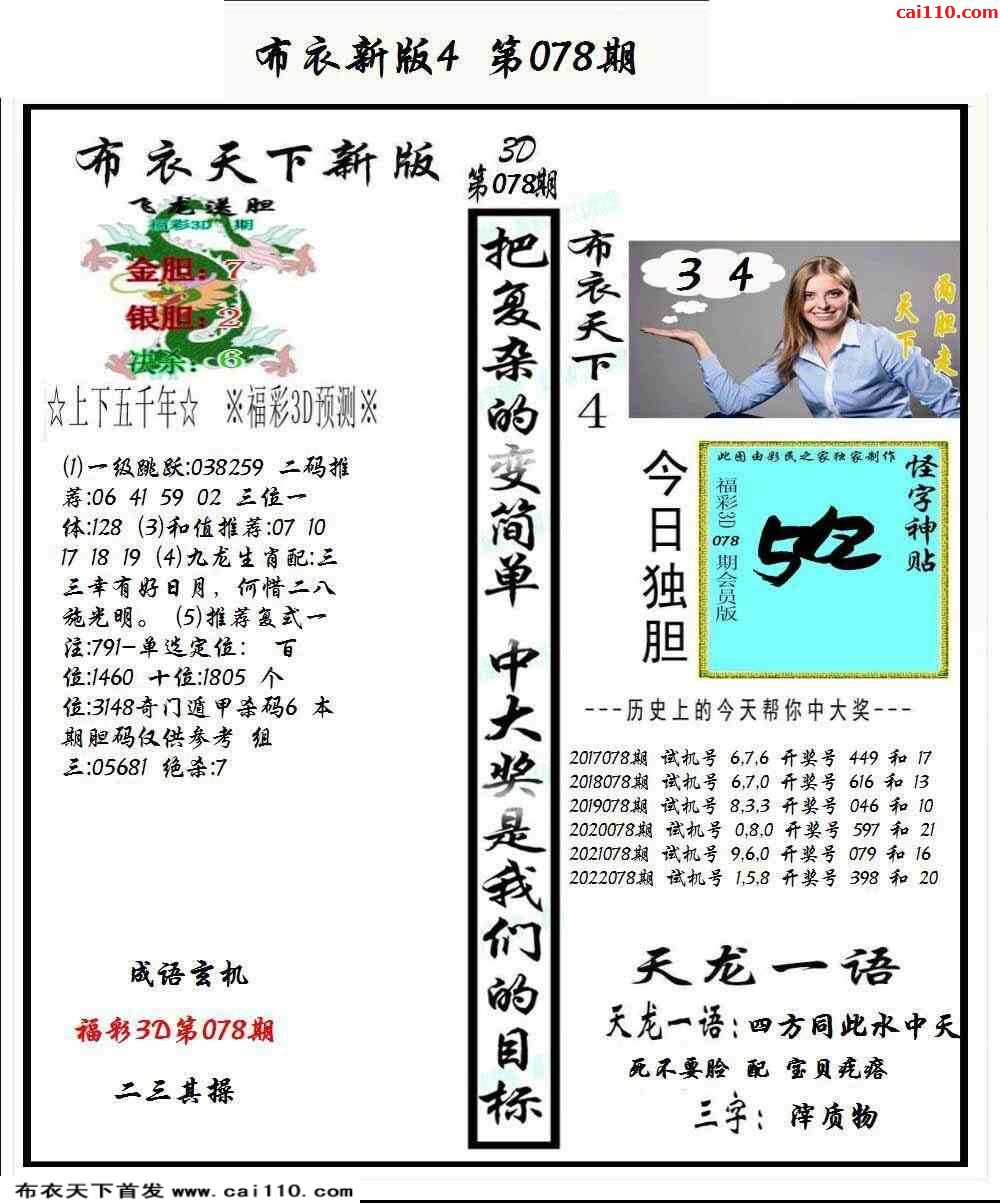 cai110.com
布衣新版4 第078期
布衣天下新版
飞龙送胆
福彩3D 期
金胆：7
银胆：2
决杀：6
☆上下五千年☆ ※福彩3D预测※
(1)一级跳跃:038259 二码推
荐:06 41 59 02 三位一
体:128 (3)和值推荐:07 10
17 18 19 (4)九龙生肖配:三
三幸有好日月，何惜二八
施光明。 (5)推荐复式一
注:791-单选定位： 百
位:1460 十位:1805 个
位:3148奇门遁甲杀码6 本
期胆码仅供参考 组
三:05681 绝杀:7
成语玄机
福彩3D第078期
二三其操
3D
第078期
把复杂的变简单 中大奖是我们的目标
布衣天下4
3 4
两胆走
天下
今日独胆
此图由彩民之家独家制作
怪字神贴
福彩3D 078 期会员版
---历史上的今天帮你中大奖---
2017078期 试机号 6,7,6 开奖号 449 和 17
2018078期 试机号 6,7,0 开奖号 616 和 13
2019078期 试机号 8,3,3 开奖号 046 和 10
2020078期 试机号 0,8,0 开奖号 597 和 21
2021078期 试机号 9,6,0 开奖号 079 和 16
2022078期 试机号 1,5,8 开奖号 398 和 20
天龙一语
天龙一语：四方同此水中天
死不要脸 配 宝贝疙瘩
三字： 滓质物
布衣天下首发 www.cai110.com